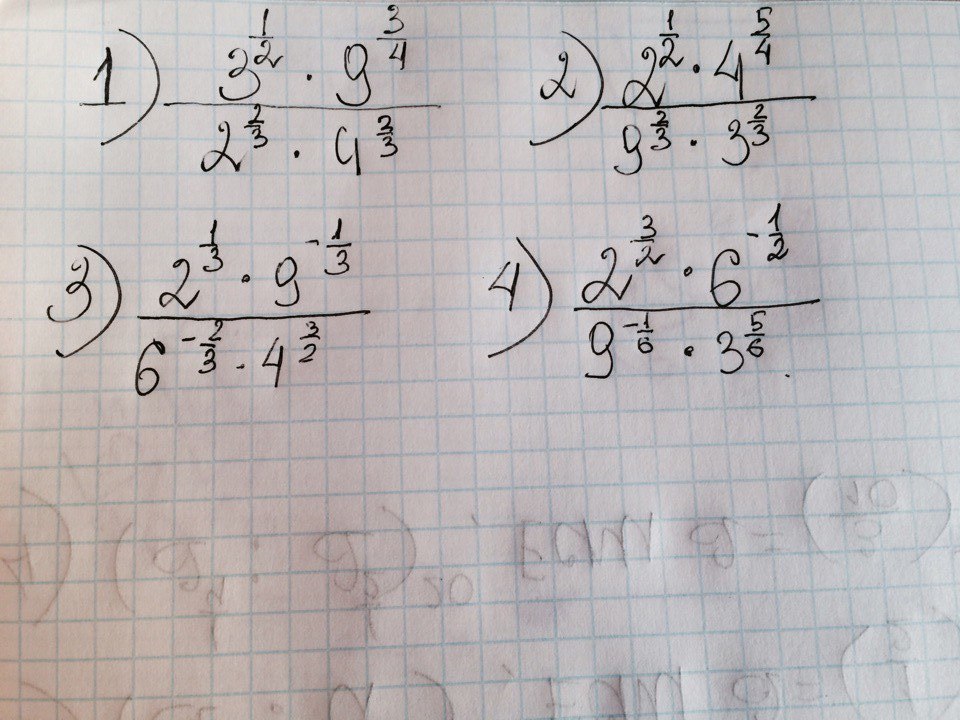 1) \frac{3^{\frac{1}{2}} \cdot 9^{\frac{3}{4}}}{2^{\frac{2}{3}} \cdot 4^{\frac{2}{3}}} 2) \frac{2^{\frac{1}{2}} \cdot 4^{\frac{5}{4}}}{9^{\frac{2}{3}} \cdot 3^{\frac{2}{3}}}
3) \frac{2^{\frac{1}{3}} \cdot 9^{-\frac{1}{3}}}{6^{-\frac{2}{3}} \cdot 4^{\frac{3}{2}}} 4) \frac{2^{\frac{3}{2}} \cdot 6^{-\frac{1}{2}}}{9^{-\frac{1}{6}} \cdot 3^{\frac{5}{6}}}